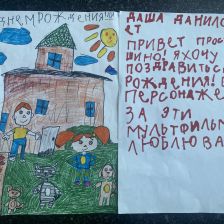 ДНЕМ РОЖДЕНИЯ!!!
ДАША ДАНИЛ
ЕТ
ПРИВЕТ ПРОС
ШИНО! Я ХОЧУ
ПОЗДРАВИТЬ С
РОЖДЕНИЯ!
ПЕРСОНАЖЕ
ЗА ЭТИ
МУЛЬТФИЛЬМ
ЛЮБЛЮ ВА